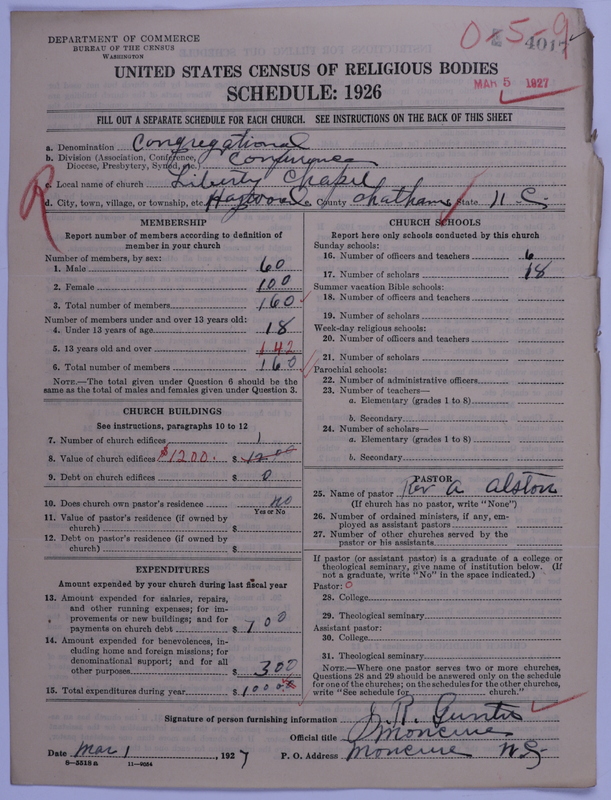 DEPARTMENT OF COMMERCE
BUREAU OF THE CENSUS
WASHINGTON
0-5-9
4017
MAR 5 1927
UNITED STATES CENSUS OF RELIGIOUS BODIES
SCHEDULE: 1926
FILL OUT A SEPARATE SCHEDULE FOR EACH CHURCH. SEE INSTRUCTIONS ON THE BACK OF THIS SHEET
a. Denomination Congregational
b. Division (Association, Conference, Diocese, Presbytery, Synod, etc.) Conference
c. Local name of church Liberty Chapel
R
d. City, town, village, or township, etc. Haywood e. County Chatham State N C
MEMBERSHIP
Report number of members according to definition of
member in your church
Number of members, by sex:
1. Male 60
2. Female 100
3. Total number of members 160
Number of members under and over 13 years old:
4. Under 13 years of age 18
5. 13 years old and over 142
6. Total number of members 160
NOTE.—The total given under Question 6 should be the
same as the total of males and females given under Question 3.
CHURCH BUILDINGS
See instructions, paragraphs 10 to 12
7. Number of church edifices 1
8. Value of church edifices $1200. $ 1200
9. Debt on church edifices $ 0
10. Does church own pastor's residence no
Yes or No
11. Value of pastor's residence (if owned by
church) $
12. Debt on pastor's residence (if owned by
church) $
EXPENDITURES
Amount expended by your church during last fiscal year
13. Amount expended for salaries, repairs,
and other running expenses; for im-
provements or new buildings; and for
payments on church debt $ 700
14. Amount expended for benevolences, in-
cluding home and foreign missions; for
denominational support; and for all
other purposes $ 300
15. Total expenditures during year $ 1000
CHURCH SCHOOLS
Report here only schools conducted by this church
Sunday schools:
16. Number of officers and teachers 6
17. Number of scholars 18
Summer vacation Bible schools:
18. Number of officers and teachers
19. Number of scholars
Week-day religious schools:
20. Number of officers and teachers
21. Number of scholars
Parochial schools:
22. Number of administrative officers
23. Number of teachers—
a. Elementary (grades 1 to 8)
b. Secondary
24. Number of scholars—
a. Elementary (grades 1 to 8)
b. Secondary
PASTOR
25. Name of pastor Rev A Alston
(If church has no pastor, write "None")
26. Number of ordained ministers, if any, em-
ployed as assistant pastors
27. Number of other churches served by the
pastor or his assistants
If pastor (or assistant pastor) is a graduate of a college or
theological seminary, give name of institution below. (If
not a graduate, write "No" in the space indicated.)
Pastor: 0
28. College
29. Theological seminary
Assistant pastor:
30. College
31. Theological seminary
NOTE.—Where one pastor serves two or more churches,
Questions 28 and 29 should be answered only on the schedule
for one of the churches; on the schedules for the other churches,
write "See schedule for church."
Signature of person furnishing information J. R. Gunter
Official title Moncure
Date Mar 1, 1927 P. O. Address Moncure N C
8-5518 a 11-9054